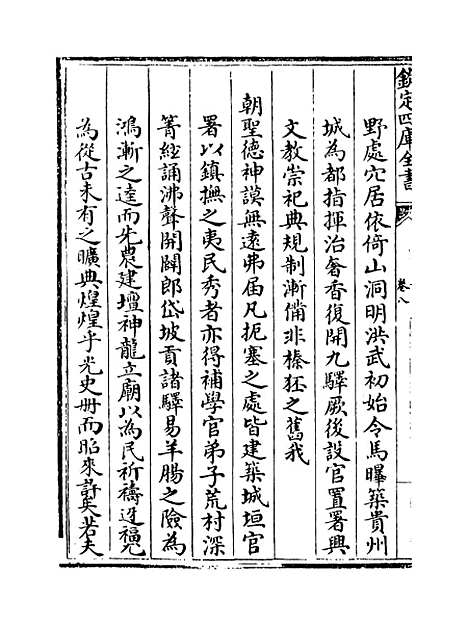 欽定四庫全書
卷八
野處穴居依倚山洞明洪武初始令馬曄築貴州
城為都指揮治奢香復開九驛厥後設官置署興
文教崇祀典規制漸備非榛狉之舊我
朝聖德神謨無遠弗届凡扼塞之處皆建築城垣官
署以鎮撫之夷民秀者亦得補學官弟子荒村深
箐經誦沸聲開闢郎岱坡貢諸驛易羊腸之險為
鴻漸之逵而先農建壇神龍立廟以為民祈禱迓福允
為從古未有之曠典煌煌乎光史册而昭來許矣若夫